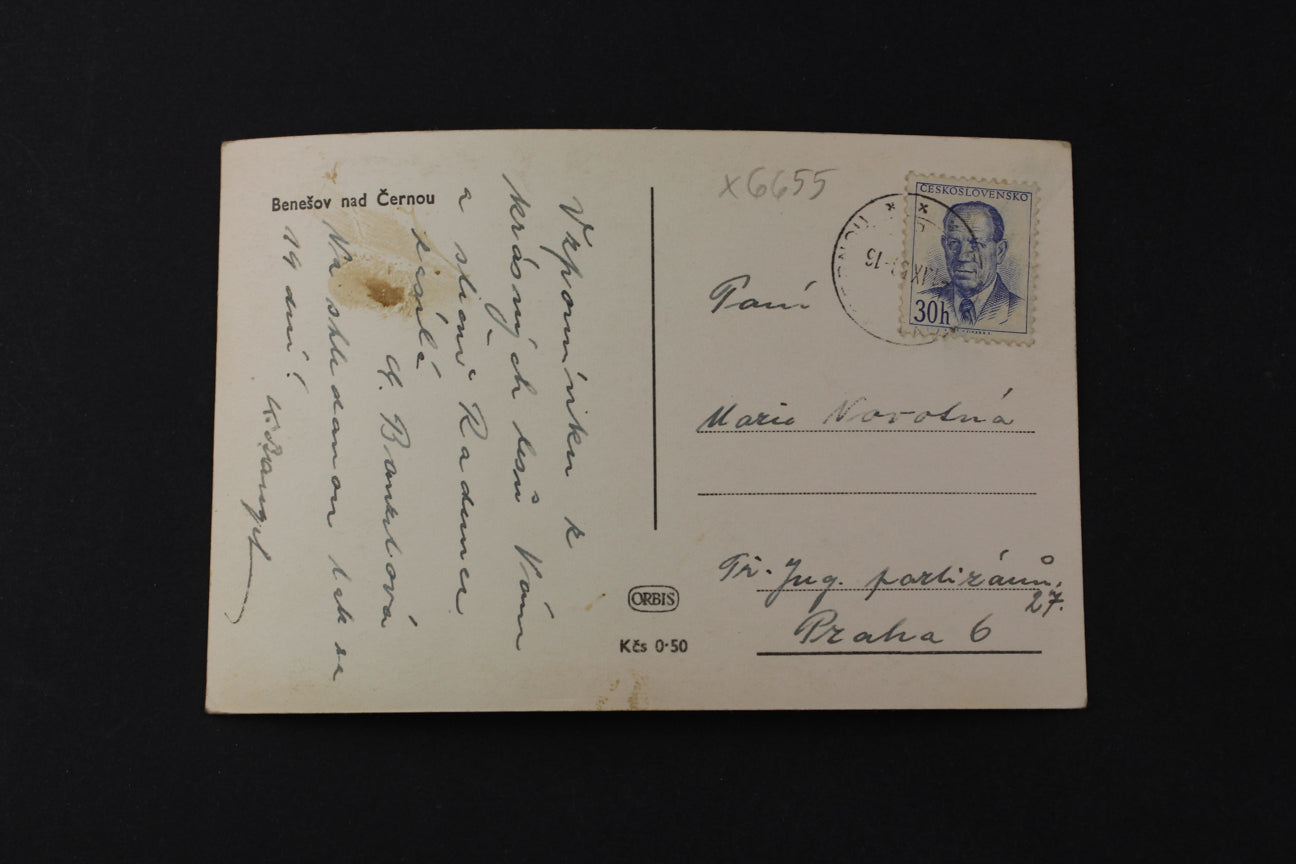 Benešov nad Černou
Vzpomínku z
krásných lesů Vám
a slečně Radunce
zasílá
A.
Na shledanou tak za
19 dní!
ORBIS
Kčs 0·50
x6655
ČESKOSLOVENSKO
30h
Paní
Marie Novotná
Tř. Jug. partizánů,
27.
Praha 6